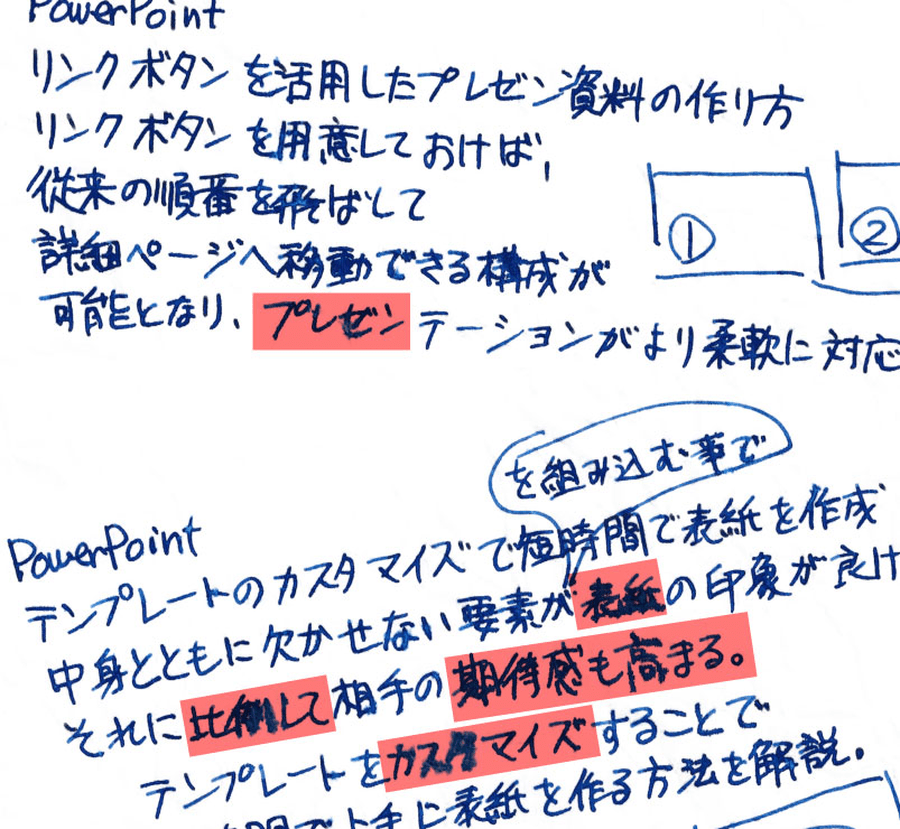 PowerPoint
リンクボタンを活用したプレゼン資料の作り方
リンクボタンを用意しておけば、
従来の順番を飛ばして
詳細ページへ移動できる構成が
可能となり、プレゼンテーションがより柔軟に対応
①
②
を組み込む事で
PowerPoint
テンプレートのカスタマイズで短時間で表紙を作成
中身とともに欠かせない要素が表紙の印象が良け
それに比例して相手の期待感も高まる。
テンプレートをカスタマイズすることで
で上手に表紙を作る方法を解説。